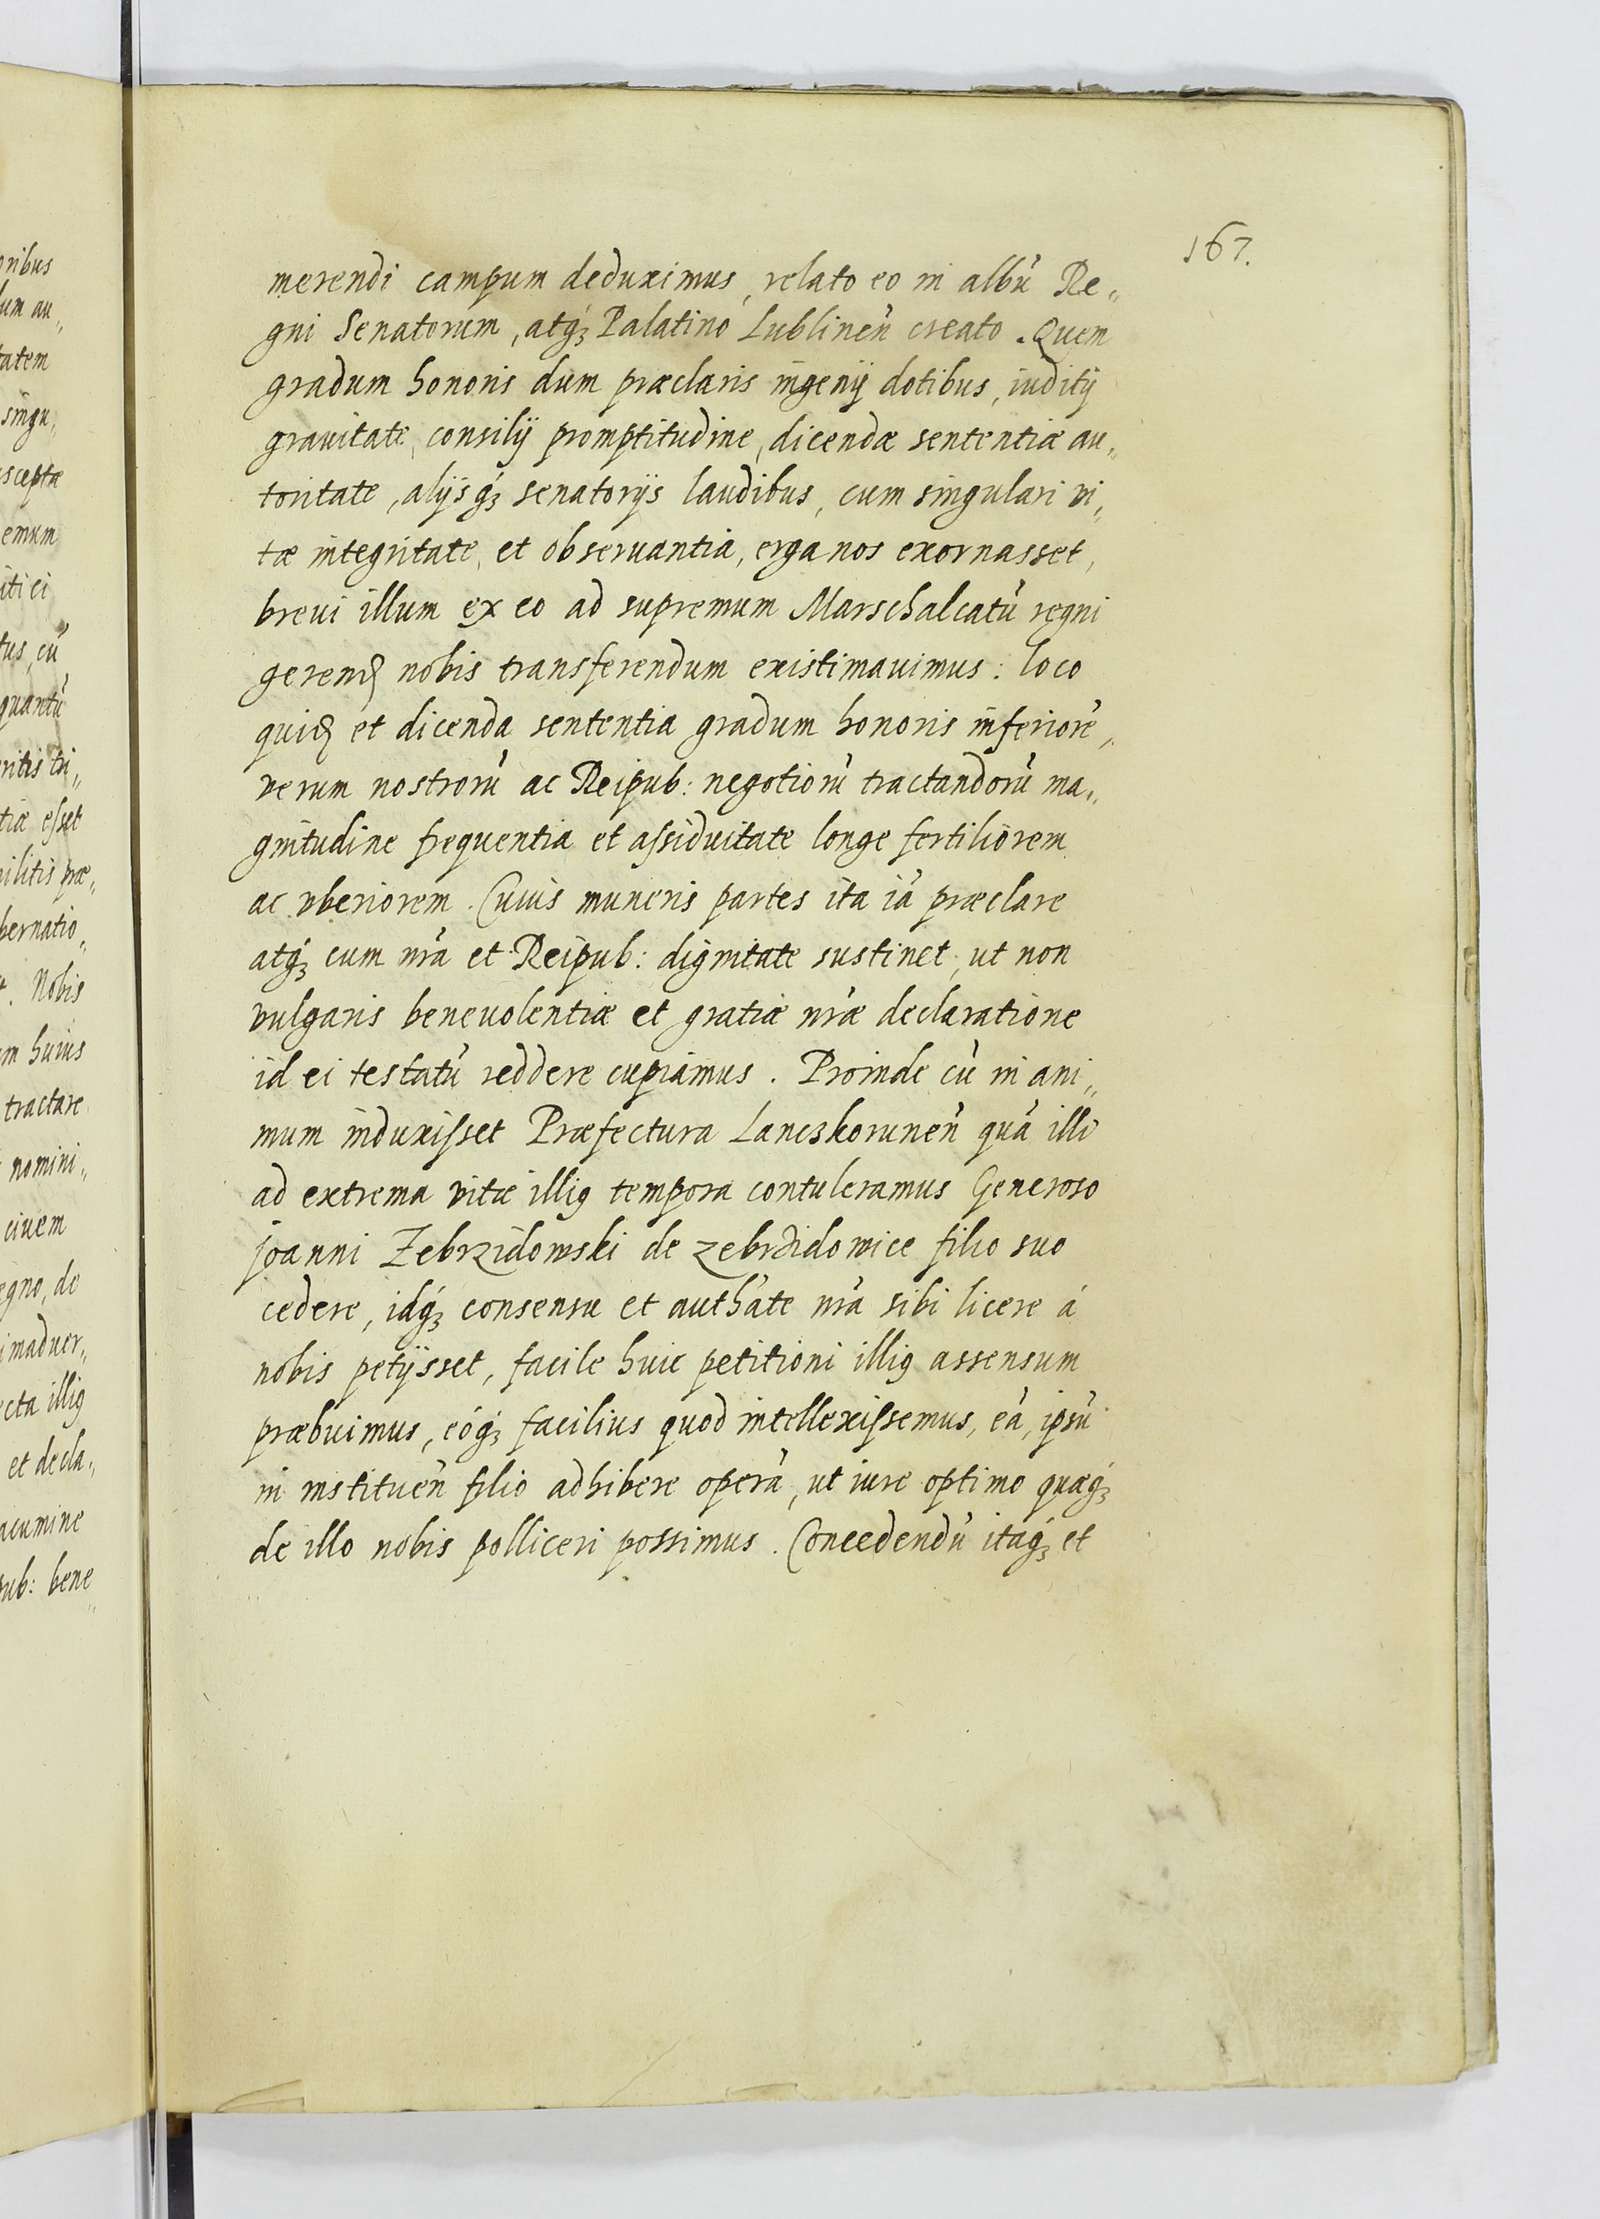 167.
merendi campum deduximus, relato eo in albū Re„
gni Senatorum, atq́ꝫ Palatino Lublineñ creato. Quem
gradum honoris dum præclaris ingenij dotibus, iuditij
grauitate, consilij promptitudine, dicendæ sententiæ au„
toritate, alijsq́ꝫ senatorijs laudibus, cum singulari vi„
tæ integritate, et obseruantia, erga nos exornasset,
breui illum ex eo ad supremum Marschalcatū regni
gerend nobis transferendum existimauimus: loco
quid et dicenda sententia gradum honoris inferiorē,
verum nostrorū ac Reipub: negotiorū tractandorū ma„
gnitudine frequentia et assiduitate longe fertiliorem
ac vberiorem. Cuius muneris partes ita iā præclare
atq́ꝫ cum nrā et Reipub: dignitate sustinet, ut non
vulgaris beneuolentiæ et gratiæ nræ declaratione
id ei testatū reddere cupiamus. Proinde cū in ani„
mum induxisset Præfectura Lanczkoruneñ quā illi
ad extrema vitæ illiꝰ tempora contuleramus Generoso
Joanni Zebrzidowski de Zebrzidowice filio suo
cedere, idq́ꝫ consensu et authāte nrā sibi licere á
nobis petijsset, facile huic petitioni illiꝰ assensum
præbuimus, eóq́ꝫ facilius quod intellexissemus, eā, ipsū
in instituen̄ filio adhibere operā, ut iure optimo quæq́ꝫ
de illo nobis polliceri possimus. Concedendū itaq́ꝫ et